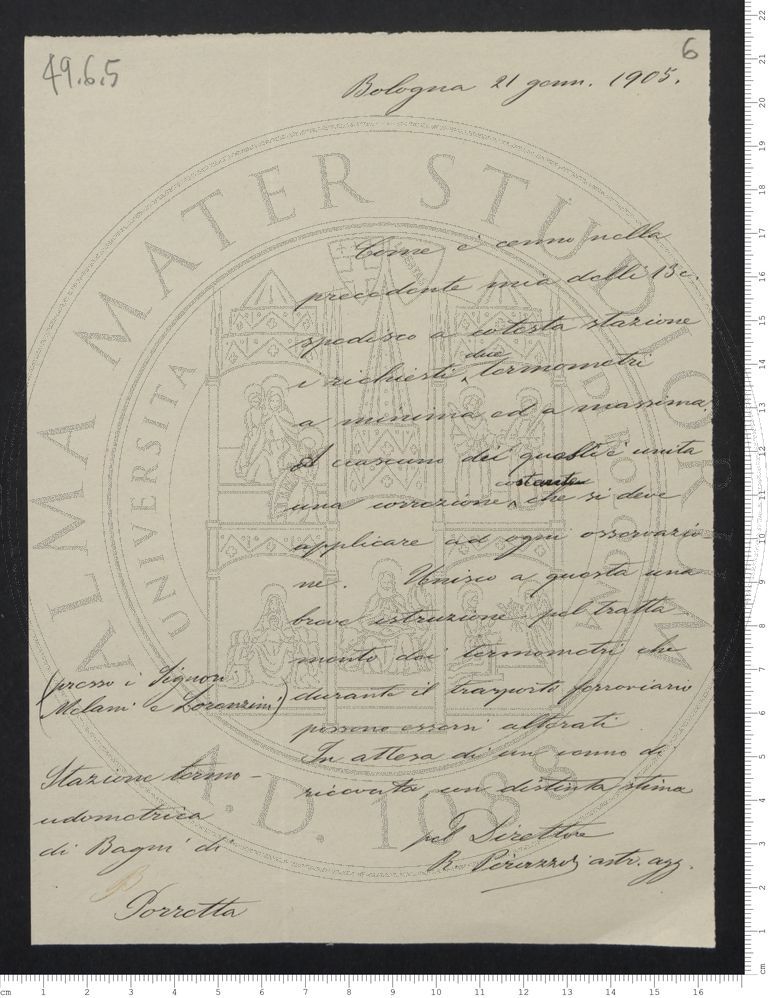 49.6.5
6
Bologna 21 genn. 1905.
Come è cenno nella
precedente mia delli 13 c.
spedisco a cotesta stazione
due
i richiesti termometri
a minima ed a massima.
A ciascuno dei quali è unita
costante
una correzione, che si deve
applicare ad ogni osservazio
ne. Unisco a questa una
breve istruzione pel tratta
mento dei termometri che
durante il trasporto ferroviario
possono essersi alterati
In attesa di un cenno di
ricevuta, con distinta stima
pel Direttore
R. Pirazzoli astr. agg.
(presso i Signori
Melani e Lorenzini)
Stazione termo-
udometrica
di Bagni di
Porretta
ALMA MATER STUDIORUM
UNIVERSITA
BOLOGNA
A.D. 1088